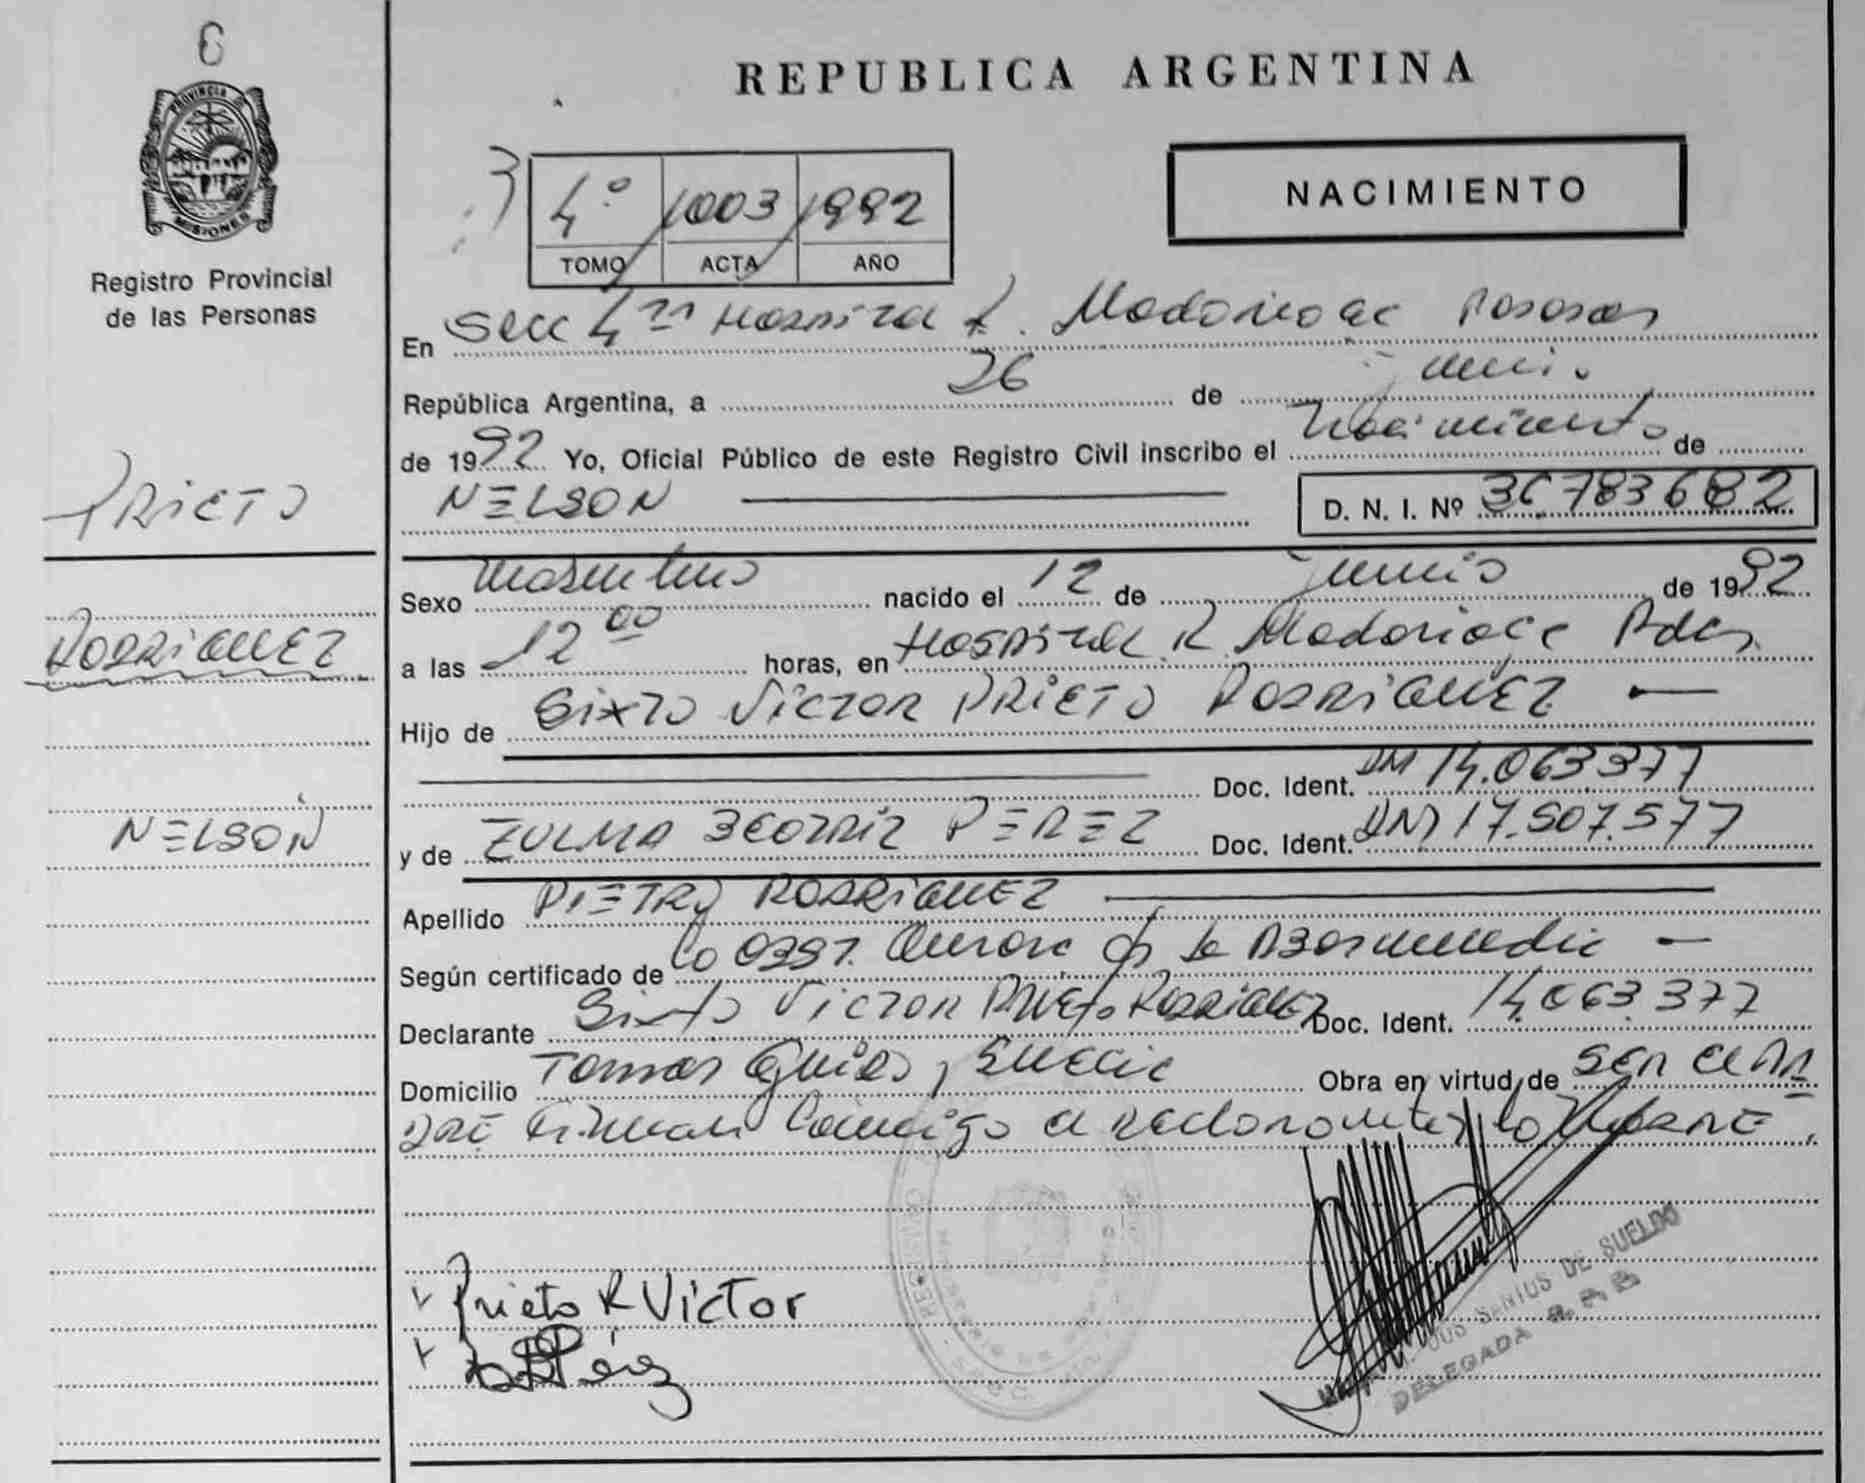 6
PROVINCIA DE
MISIONES
Registro Provincial
de las Personas
PRIETO
RODRIGUEZ
NELSON
REPUBLICA ARGENTINA
NACIMIENTO
3
4º 1003 1992
TOMO ACTA AÑO
En Secc 4ta Hospital R. Madariaga Posadas
República Argentina, a 26 de junio
de 1992 Yo, Oficial Público de este Registro Civil inscribo el Nacimiento de
NELSON D. N. I. Nº 36783682
Sexo masculino nacido el 12 de junio de 1992
a las 12 00 horas, en Hospital R. Madariaga Pdas
Hijo de Sixto Victor PRIETO RODRIGUEZ
Doc. Ident. DNI 14.063.377
y de ZULMA BEATRIZ PEREZ Doc. Ident. DNI 17.507.577
Apellido PIETRO RODRIGUEZ
Según certificado de La Obst. Aurora de
Declarante Sixto Victor Prieto Rodriguez Doc. Ident. 14.063.377
Domicilio Tomas Guido y Suecia Obra en virtud de ser el
firman conmigo el declarante y la
Prieto R Victor
Pérez
DE SUELDO
DELEGADA